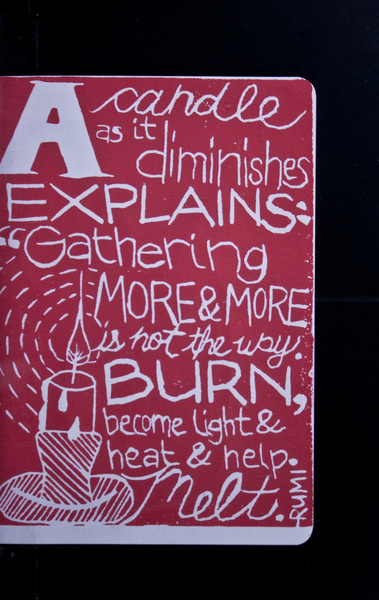 A candle
as it
diminishes
EXPLAINS:
"Gathering
MORE & MORE
is not the way.
BURN,
become light &
heat & help.
Melt.
RUMI